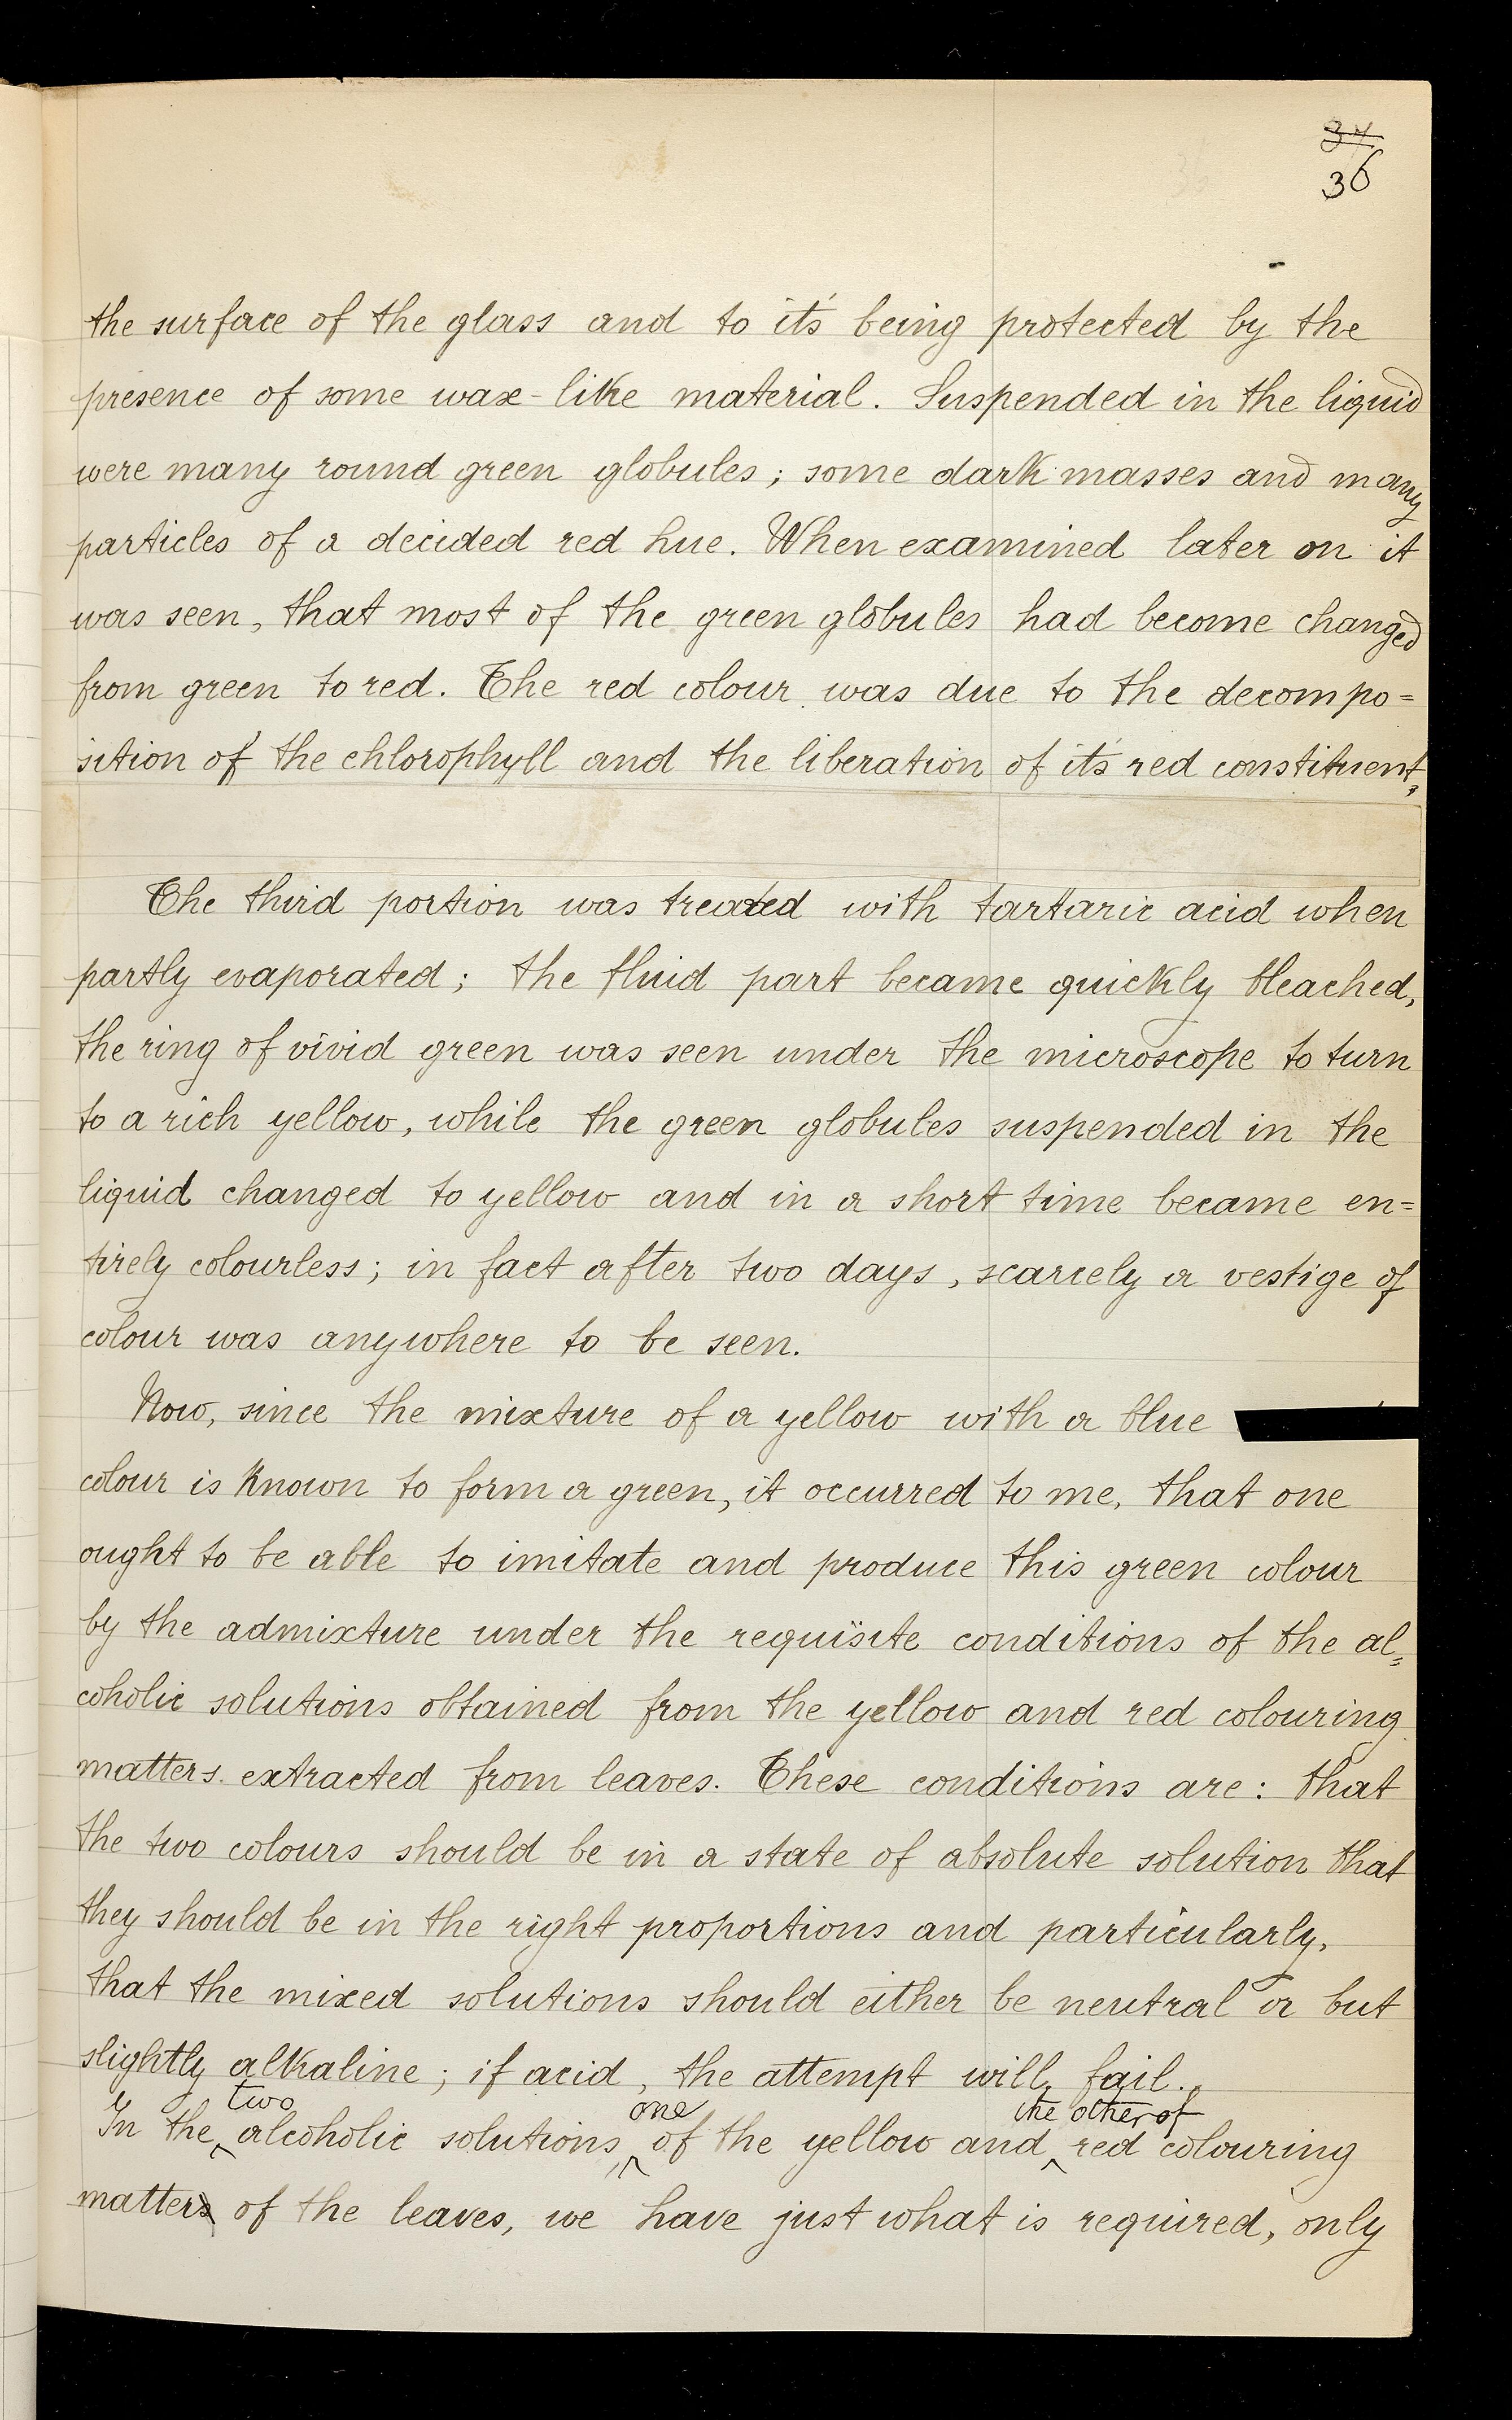 36
the surface of the glass and to it's being protected by the
presence of some wax-like material. Suspended in the liquid
were many round green globules; some dark masses and many
particles of a decided red hue. When examined later on it
was seen, that most of the green globules had become changed
from green to red. The red colour was due to the decompo=
sition of the chlorophyll and the liberation of it's red constituent,
The third portion was treated with tartaric acid when
partly evaporated; the fluid part became quickly bleached,
the ring of vivid green was seen under the microscope to turn
to a rich yellow, while the green globules suspended in the
liquid changed to yellow and in a short time became en=
tirely colourless; in fact after two days, scarcely a vestige of
colour was anywhere to be seen.
Now, since the mixture of a yellow with a blue
colour is known to form a green, it occurred to me, that one
ought to be able to imitate and produce this green colour
by the admixture under the requisite conditions of the al=
coholic solutions obtained from the yellow and red colouring
matters extracted from leaves. These conditions are: that
the two colours should be in a state of absolute solution that
they should be in the right proportions and particularly,
that the mixed solutions should either be neutral or but
slightly alkaline; if acid, the attempt will fail.
two one the other of
In the alcoholic solutions, of the yellow and red colouring
matters of the leaves, we have just what is required, only